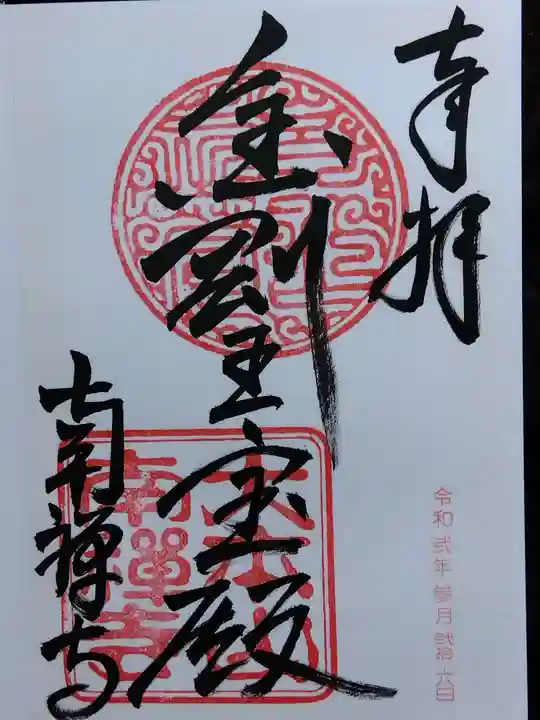 奉拝
令和弐年参月弐拾六日
金剛王宝殿
南禅寺